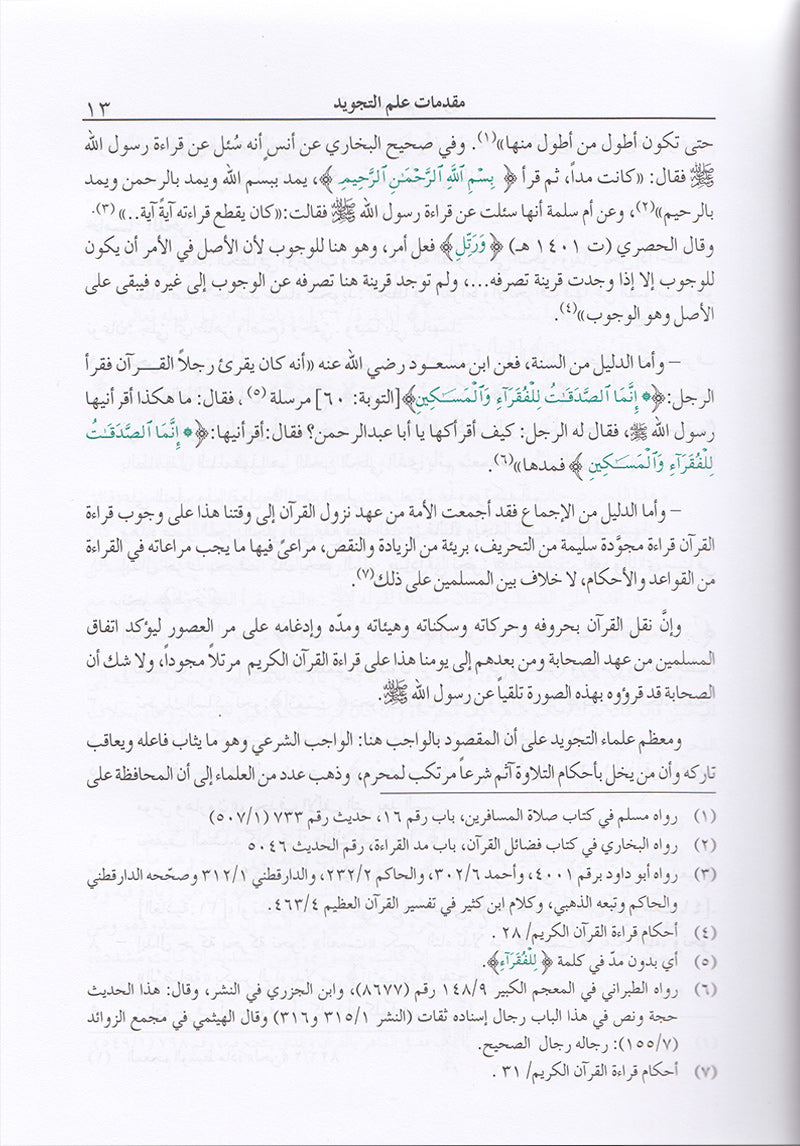 مقدمات علم التجويد ١٣
حتى تكون أطول من أطول منها»(١). وفي صحيح البخاري عن أنسٍ أنه سُئل عن قراءة رسول الله
ﷺ فقال: «كانت مداً، ثم قرأ ﴿ بِسْمِ ٱللَّهِ ٱلرَّحْمَٰنِ ٱلرَّحِيمِ ﴾، يمد ببسم الله ويمد بالرحمن ويمد
بالرحيم»(٢)، وعن أم سلمة أنها سئلت عن قراءة رسول الله ﷺ فقالت:«كان يقطع قراءته آيةً آية..» (٣).
وقال الحصري (ت ١٤٠١ هـ) ﴿ وَرَتِّلِ ﴾ فعل أمر، وهو هنا للوجوب لأن الأصل في الأمر أن يكون
للوجوب إلا إذا وجدت قرينة تصرفه...، ولم توجد قرينة هنا تصرفه عن الوجوب إلى غيره فيبقى على
الأصل وهو الوجوب»(٤).
– وأما الدليل من السنة، فعن ابن مسعود رضي الله عنه «أنه كان يقرئ رجلاً القرآن فقرأ
الرجل:﴿۞ إِنَّمَا ٱلصَّدَقَٰتُ لِلْفُقَرَآءِ وَٱلْمَسَٰكِينِ﴾[التوبة: ٦٠] مرسلة (٥)، فقال: ما هكذا أقرأنيها
رسول الله ﷺ، فقال له الرجل: كيف أقرأكها يا أبا عبدالرحمن؟ فقال: أقرأنيها:﴿۞ إِنَّمَا ٱلصَّدَقَٰتُ
لِلْفُقَرَآءِ وَٱلْمَسَٰكِينِ ﴾ فمدها»(٦).
– وأما الدليل من الإجماع فقد أجمعت الأمة من عهد نزول القرآن إلى وقتنا هذا على وجوب قراءة
القرآن قراءة مجوَّدة سليمة من التحريف، بريئة من الزيادة والنقص، مراعىً فيها ما يجب مراعاته في القراءة
من القواعد والأحكام، لا خلاف بين المسلمين على ذلك(٧).
وإنَّ نقل القرآن بحروفه وحركاته وسكناته وهيئاته ومدّه وإدغامه على مر العصور ليؤكد اتفاق
المسلمين من عهد الصحابة ومن بعدهم إلى يومنا هذا على قراءة القرآن الكريم مرتلاً مجوداً، ولا شك أن
الصحابة قد قرؤوه بهذه الصورة تلقياً عن رسول الله ﷺ.
ومعظم علماء التجويد على أن المقصود بالواجب هنا: الواجب الشرعي وهو ما يثاب فاعله ويعاقب
تاركه وأن من يخل بأحكام التلاوة آثم شرعاً مرتكب لمحرم، وذهب عدد من العلماء إلى أن المحافظة على
(١) رواه مسلم في كتاب صلاة المسافرين، باب رقم ١٦، حديث رقم ٧٣٣ (٥٠٧/١)
(٢) رواه البخاري في كتاب فضائل القرآن، باب مد القراءة، رقم الحديث ٥٠٤٦
(٣) رواه أبو داود برقم ٤٠٠١، وأحمد ٣٠٢/٦، والحاكم ٢٣٢/٢، والدارقطني ٣١٢/١ وصحّحه الدارقطني
والحاكم وتبعه الذهبي، وكلام ابن كثير في تفسير القرآن العظيم ٤٦٣/٤.
(٤) أحكام قراءة القرآن الكريم/ ٢٨ .
(٥) أي بدون مدّ في كلمة ﴿ لِلْفُقَرَآءِ﴾.
(٦) رواه الطبراني في المعجم الكبير ١٤٨/٩ رقم (٨٦٧٧)، وابن الجزري في النشر، وقال: هذا الحديث
حجة ونص في هذا الباب رجال إسناده ثقات (النشر ٣١٥/١ و٣١٦) وقال الهيثمي في مجمع الزوائد
(١٥٥/٧): رجاله رجال الصحيح.
(٧) أحكام قراءة القرآن الكريم/ ٣١ .